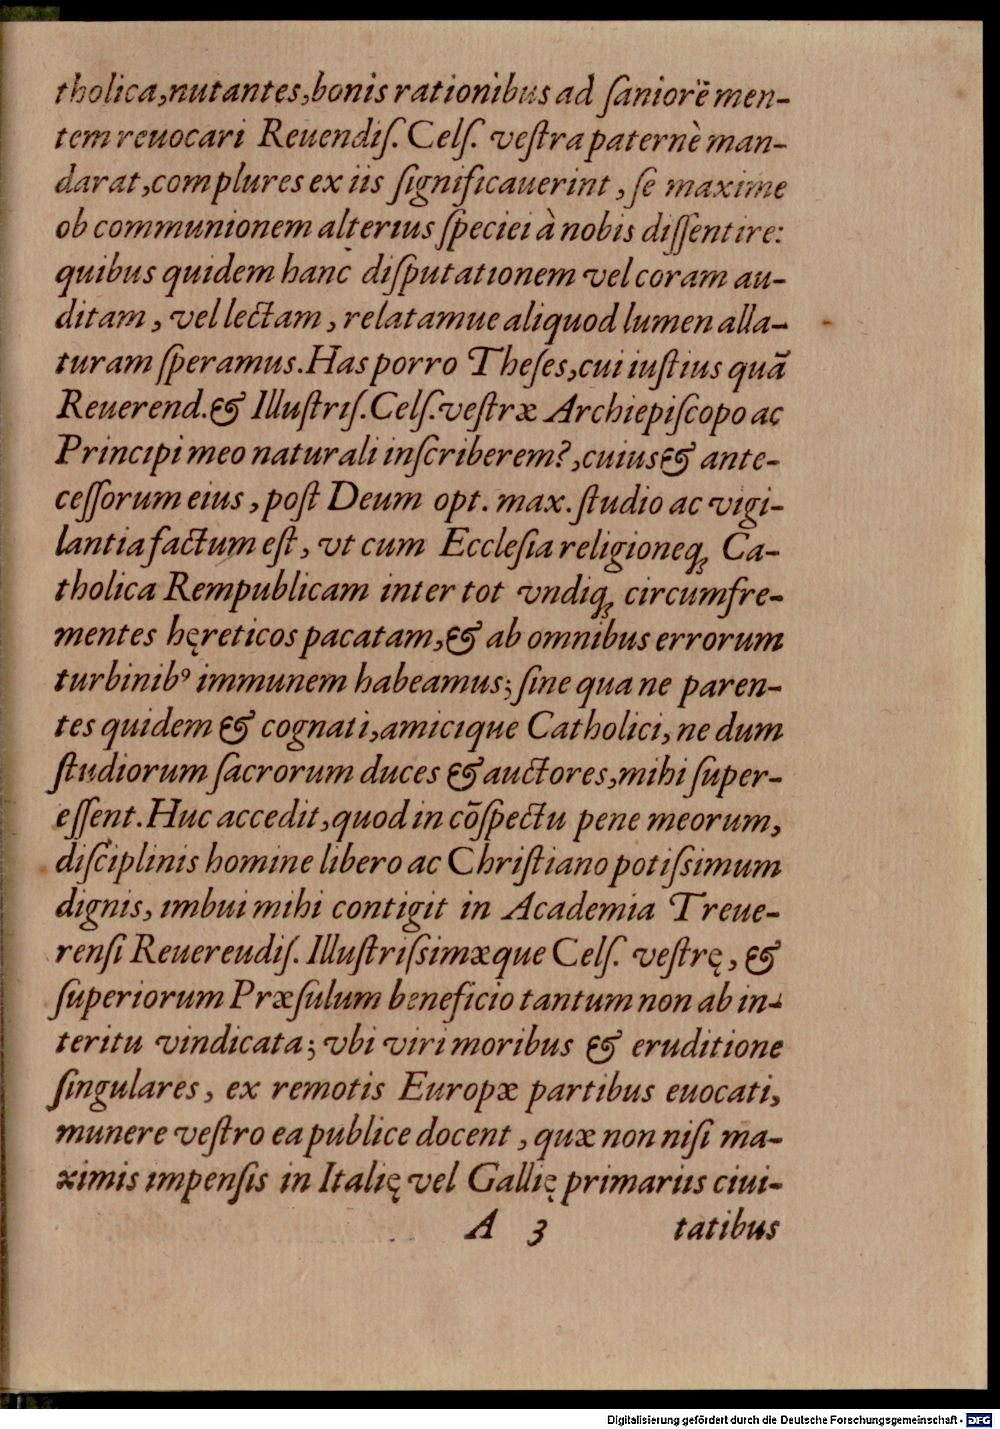 tholica, nutantes, bonis rationibus ad ſaniorẽ men-
tem reuocari Reuendiſ. Celſ. veſtra paternè man-
darat, complures ex iis ſignificauerint, ſe maxime
ob communionem alterius ſpeciei à nobis diſſentire:
quibus quidem hanc diſputationem vel coram au-
ditam, vel lectam, relatamue aliquod lumen alla-
turam ſperamus. Has porro Theſes, cui iuſtius quã
Reuerend. & Illuſtriſ. Celſ. veſtræ Archiepiſcopo ac
Principi meo naturali inſcriberem?, cuius & ante-
ceſſorum eius, poſt Deum opt. max. ſtudio ac vigi-
lantia factum eſt, vt cum Eccleſia religioneq́; Ca-
tholica Rempublicam inter tot vndiq́; circumfre-
mentes hęreticos pacatam, & ab omnibus errorum
turbinibꝰ immunem habeamus; ſine qua ne paren-
tes quidem & cognati, amicique Catholici, ne dum
ſtudiorum ſacrorum duces & auctores, mihi ſuper-
eſſent. Huc accedit, quod in cõſpectu pene meorum,
diſciplinis homine libero ac Chriſtiano potiſsimum
dignis, imbui mihi contigit in Academia Treue-
renſi Reuereudiſ. Illuſtriſsimæque Celſ. veſtrę, &
ſuperiorum Præſulum beneficio tantum non ab in-
teritu vindicata; vbi viri moribus & eruditione
ſingulares, ex remotis Europæ partibus euocati,
munere veſtro ea publice docent, quæ non niſi ma-
ximis impenſis in Italię vel Gallię primariis ciui-
A 3 tatibus
Digitalisierung gefördert durch die Deutsche Forschungsgemeinschaft - DFG